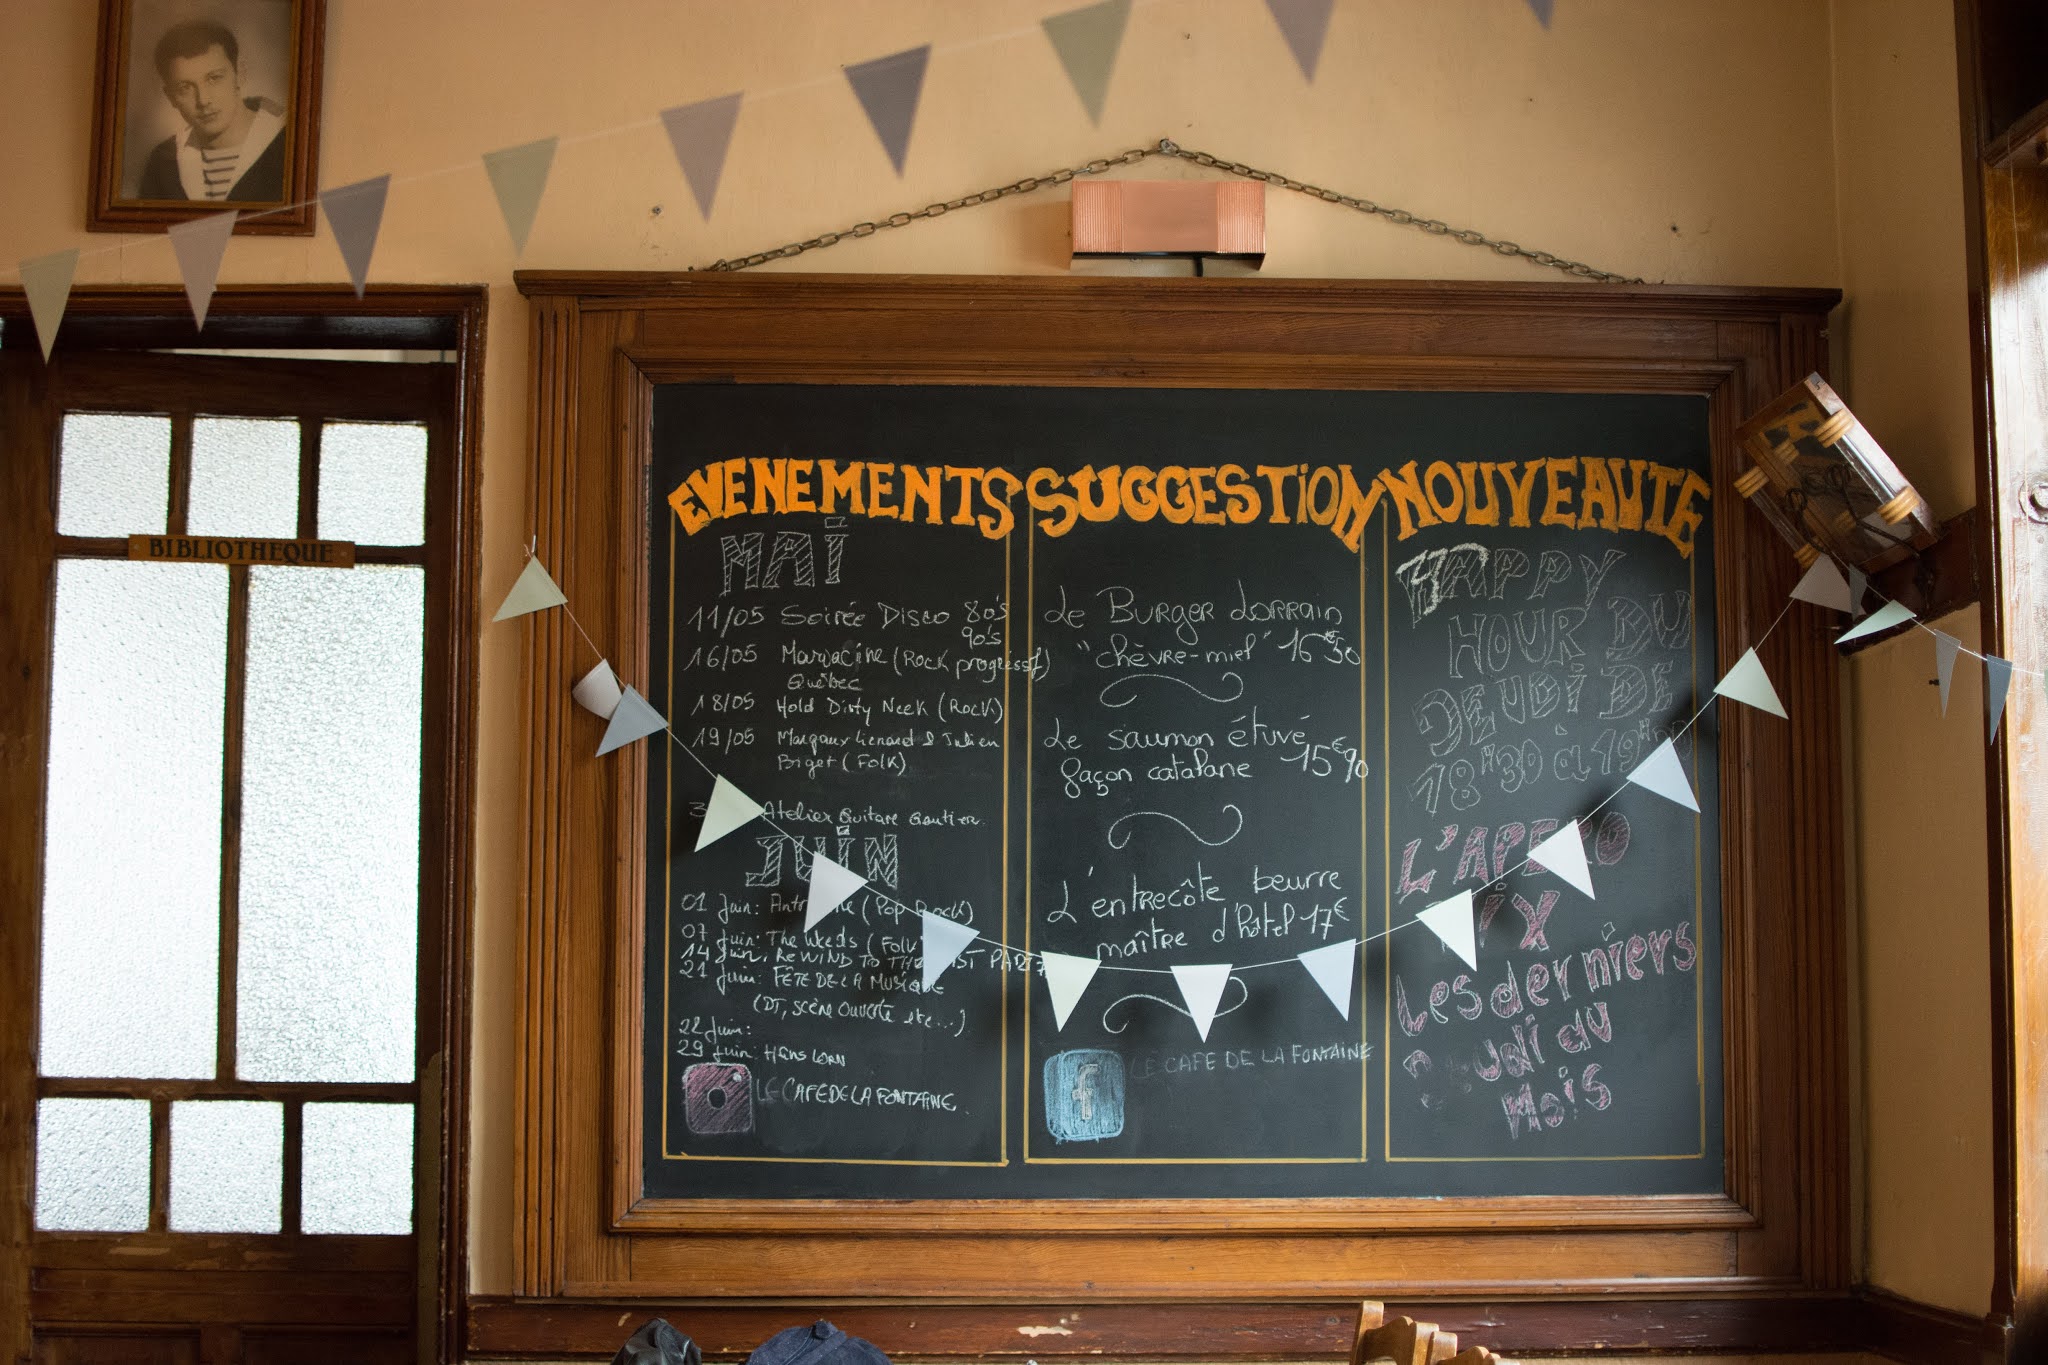 BIBLIOTHEQUE
EVENEMENTS
MAI
11/05 Soirée Disco 80's
90's
16/05 (Rock progressif)
Québec
18/05 Hold Dirty Neck (Rock)
19/05 Margaux Lienard & Julien
Biget (Folk)
Atelier Guitare Gautier.
JUIN
01 Juin: (Pop Rock)
07 Juin: The Weeds (Folk
14 Juin: REWIND TO THE PART
21 Juin: FÊTE DE LA MUSIQUE
(DJ, scène ouverte etc...)
22 Juin:
29 Juin: Hans Lorn
LE CAFE DE LA FONTAINE.
SUGGESTION
Le Burger Lorrain
"chèvre-miel" 16€50
Le saumon étuvé
façon catalane 15€90
L'entrecôte beurre
maître d'hôtel 17€
f
LE CAFE DE LA FONTAINE
NOUVEAUTE
HAPPY
HOUR DU
JEUDI DE
18H30 à 19H
L'APERO
Les derniers
Jeudi du
Mois